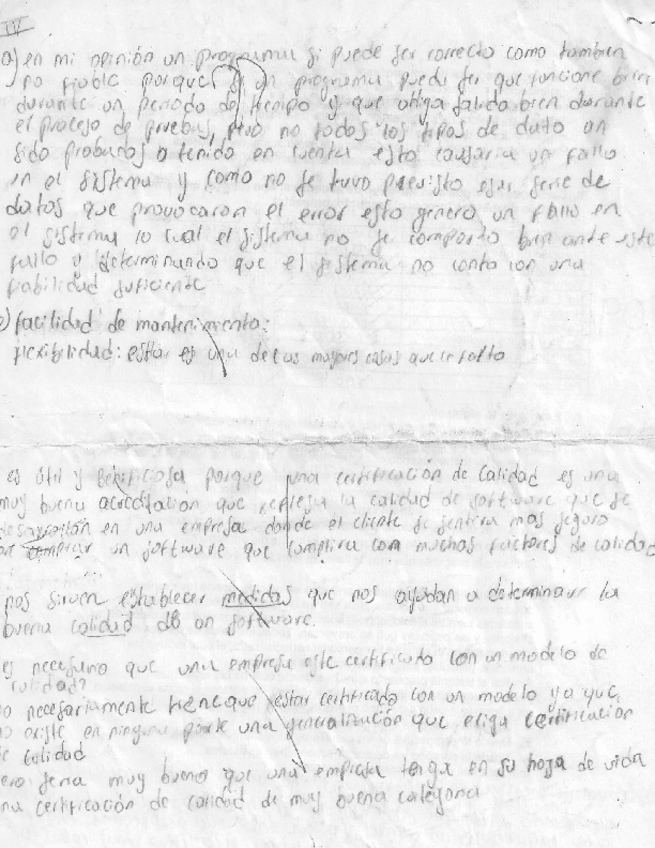 IV
a) en mi opinión un programa si puede ser correcto como tambien
no fiable porque si un programa puede ser que funcione bien
durante un periodo de tiempo y que alliga salido bien durante
el proceso de pruebas, pero no todos los tipos de dato an
sido probados o tenido en cuenta esto causaria un fallo
en el sistema y como no se tuvo previsto esar serie de
datos que provocaron el error esto genero un fallo en
el sistema lo cual el sistema no se comporto bien ante este
fallo y determinando que el sistema no conto con una
fiabilidad suficiente
e) facilidad de mantenimiento:
flexibilidad: es una de las mayores cosas que le falto
es útil y porque una certificación de calidad es una
muy buena acreditación que la calidad de software que se
en una empresa donde el cliente se sentira mas seguro
comprar un software que cumplira con muchos factores de calidad
nos sirven establecer medidas que nos ayudan a determinar la
buena calidad de un software.
es necesario que una empresa este certificado con un modelo de
calidad?
no necesariamente tiene que estar certificado con un modelo ya que
no existe en ninguna parte una generalización que eliga certificación
de calidad
pero seria muy bueno que una empresa tenga en su hoja de vida
una certificación de calidad de muy buena categoria